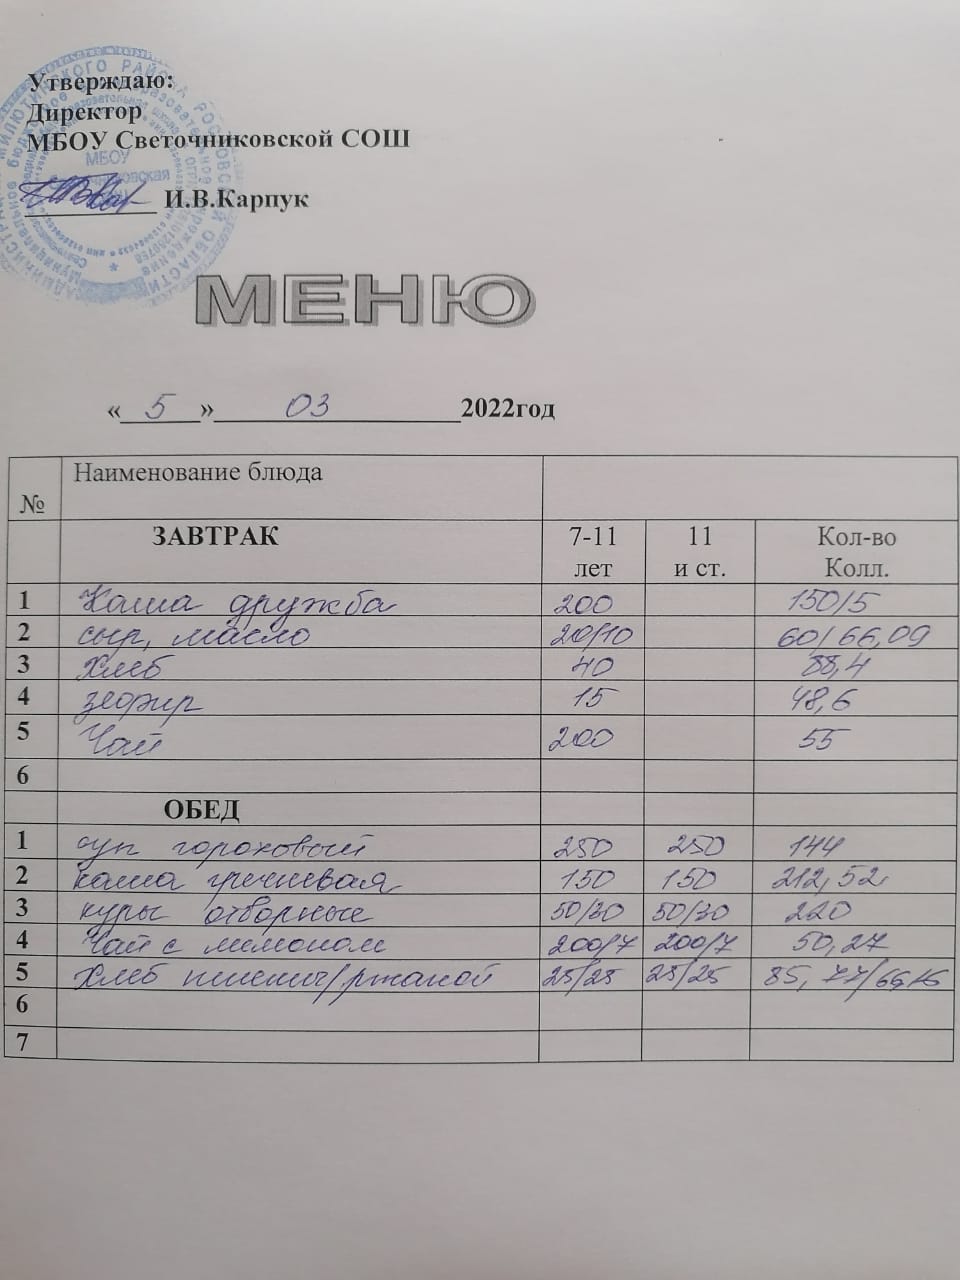 Утверждаю:
Директор
МБОУ Светочниковской СОШ
И.В.Карпук
МЕНЮ
« 5 » 03 2022год
№ Наименование блюда
ЗАВТРАК 7-11 лет 11 и ст. Кол-во Колл.
1 Каша дружба 200 150/5
2 сыр, масло 20/10 60/66,09
3 хлеб 40 88,4
4 зефир 15 48,6
5 Чай 200 55
6
ОБЕД
1 суп гороховый 250 250 144
2 каша гречневая 150 150 212,52
3 куры отворные 50/30 50/30 220
4 Чай с лимоном 200/7 200/7 50,27
5 Хлеб пшенич/ржаной 25/25 25/25 85,77/
6
7